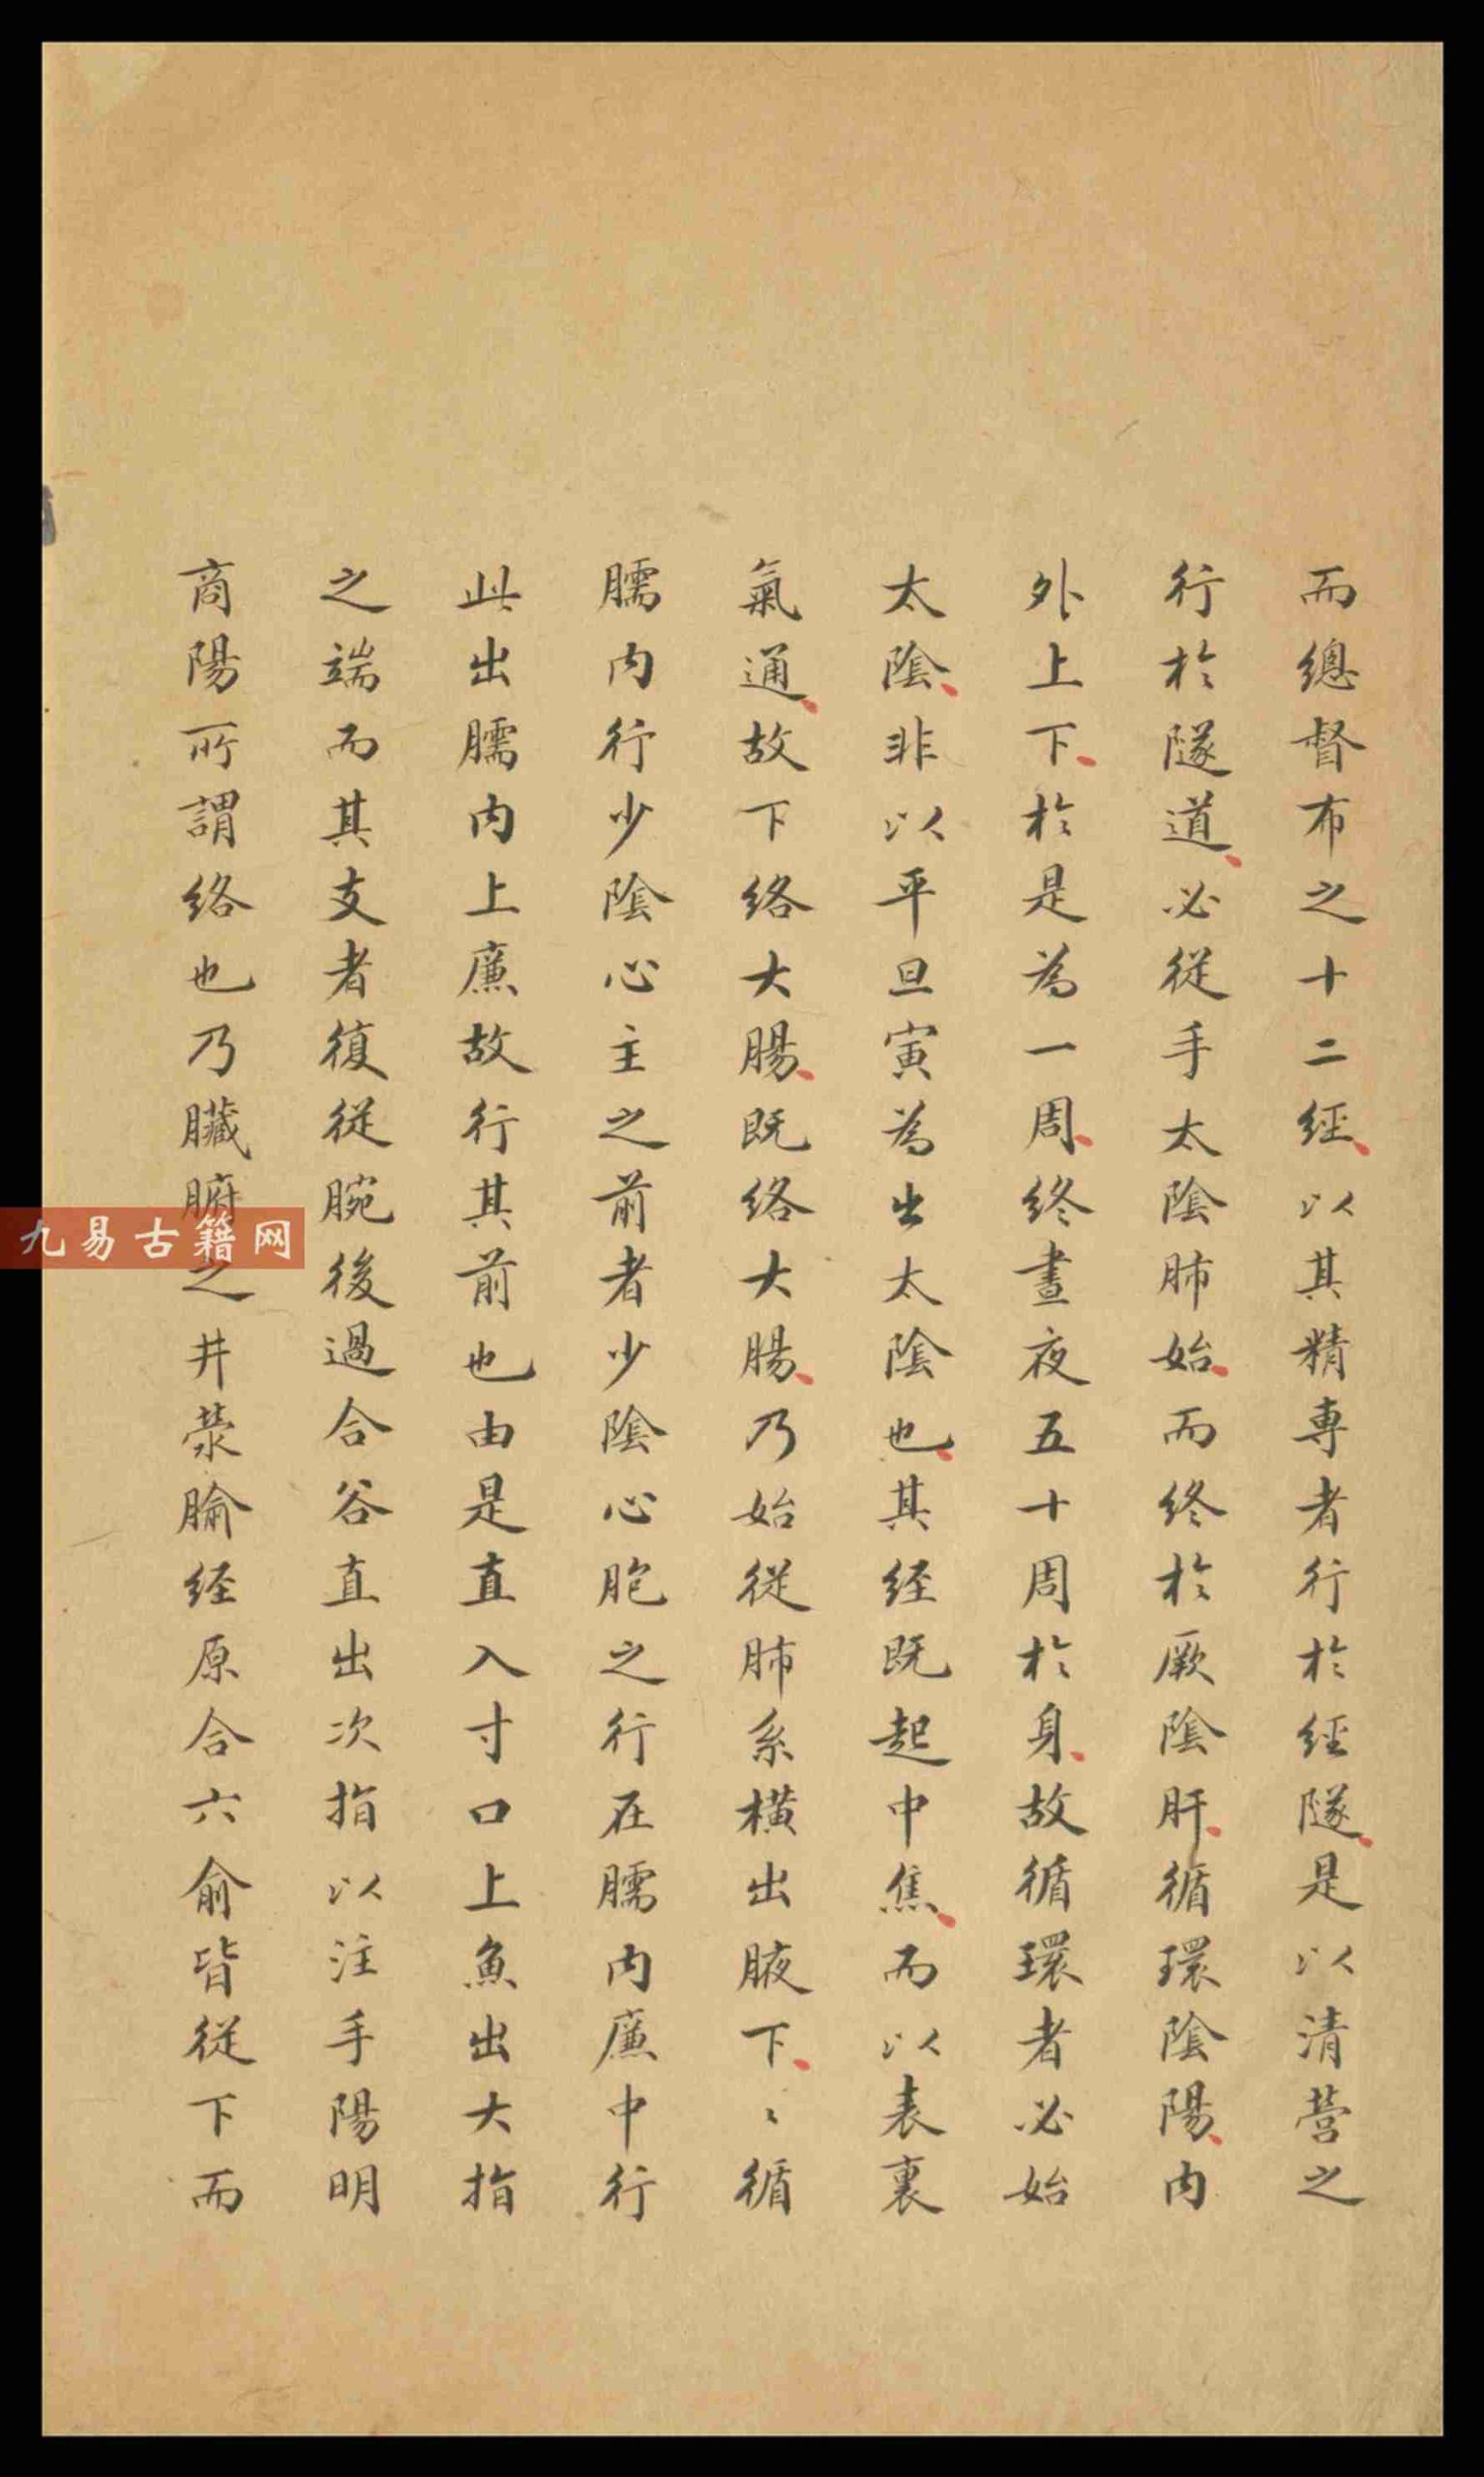 而總督布之十二經以其精専者行於經隧是以清营之
行於隧道必從手太陰肺始而终於厥陰肝循環陰陽内
外上下於是為一周终晝夜五十周於身故循環者必始
太陰非以平旦寅為出太陰也其経既起中焦而以表裏
氣通故下络大腸既络大腸乃始従肺系横出腋下〻循
臑内行少陰心主之前者少陰心胞之行在臑内廉中行
此出臑内上廉故行其前也由是直入寸口上魚出大指
之端而其支者復從腕後過合谷直出次指以注手陽明
商陽所謂络也乃臟腑之井荥腧経原合六俞皆従下而
九易古籍网